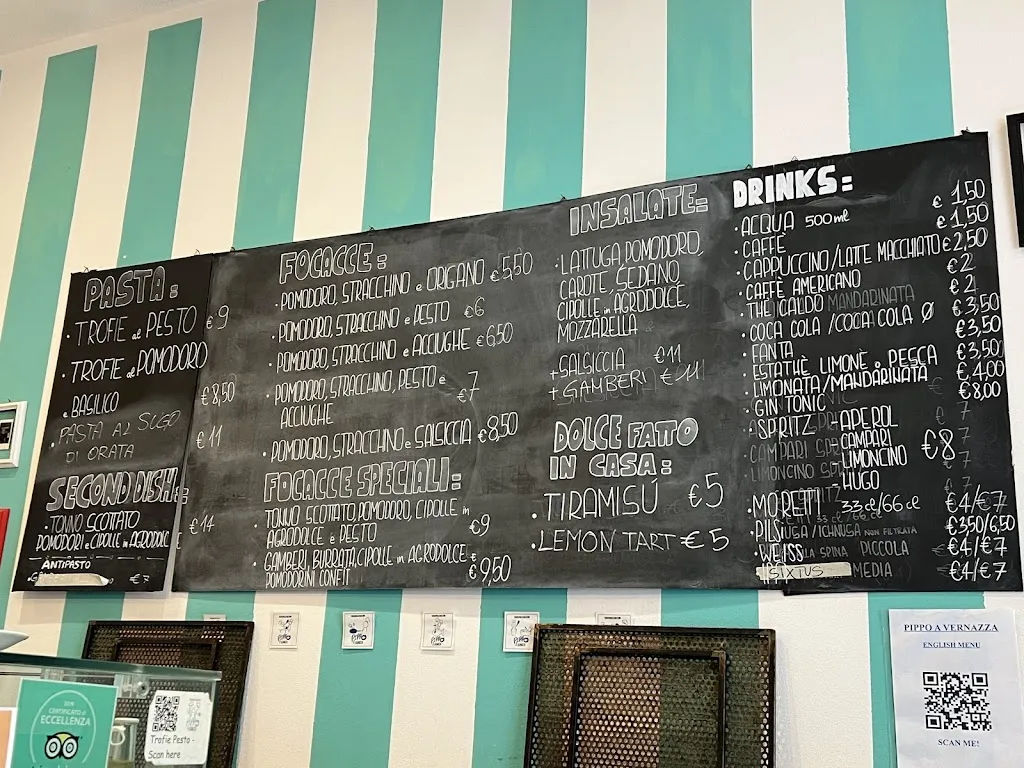 PASTA:
• TROFIE al PESTO €9
• TROFIE al POMODORO
e BASILICO €8,50
• PASTA AL SUGO
DI ORATA €11
SECOND DISH:
• TONNO SCOTTATO
POMODORI e CIPOLLE in AGRODOLCE €14
ANTIPASTO
€7
FOCACCE:
• POMODORO, STRACCHINO e ORIGANO €5,50
• POMODORO, STRACCHINO e PESTO €6
• POMODORO, STRACCHINO e ACCIUGHE €6,50
• POMODORO, STRACCHINO, PESTO e
ACCIUGHE €7
• POMODORO, STRACCHINO e SALSICCIA €8,50
FOCACCE SPECIALI:
• TONNO SCOTTATO, POMODORO, CIPOLLE in
AGRODOLCE e PESTO €9
• GAMBERI, BURRATA, CIPOLLE in AGRODOLCE e
POMODORINI CONFIT €9,50
INSALATE:
• LATTUGA, POMODORO,
CAROTE, SEDANO
CIPOLLE in AGRODOLCE,
MOZZARELLA
+ SALSICCIA €11
+ GAMBERI €11
DOLCE FATTO
IN CASA:
• TIRAMISÚ €5
• LEMON TART €5
DRINKS:
• ACQUA 500ml € 1,50
• CAFFÈ € 1,50
• CAPPUCCINO/LATTE MACCHIATO €2,50
• CAFFÈ AMERICANO €2
• THE CALDO €2
• COCA COLA / COCA COLA Ø €3,50
• FANTA €3,50
• ESTATHÈ LIMONE o PESCA €3,50
• LIMONATA/MANDARINATA €4,00
• GIN TONIC €8,00
• SPRITZ - APEROL
- CAMPARI €8
- LIMONCINO
- HUGO
• MORETTI 33 cl/66 cl €4/€7
• PILS €3,50/6,50
• WEISS PICCOLA €4/€7
SIXTUS MEDIA €4/€7
PIPPO A VERNAZZA
ENGLISH MENU
SCAN ME!
CERTIFICATO di
ECCELLENZA
Trofie Pesto -
Scan here